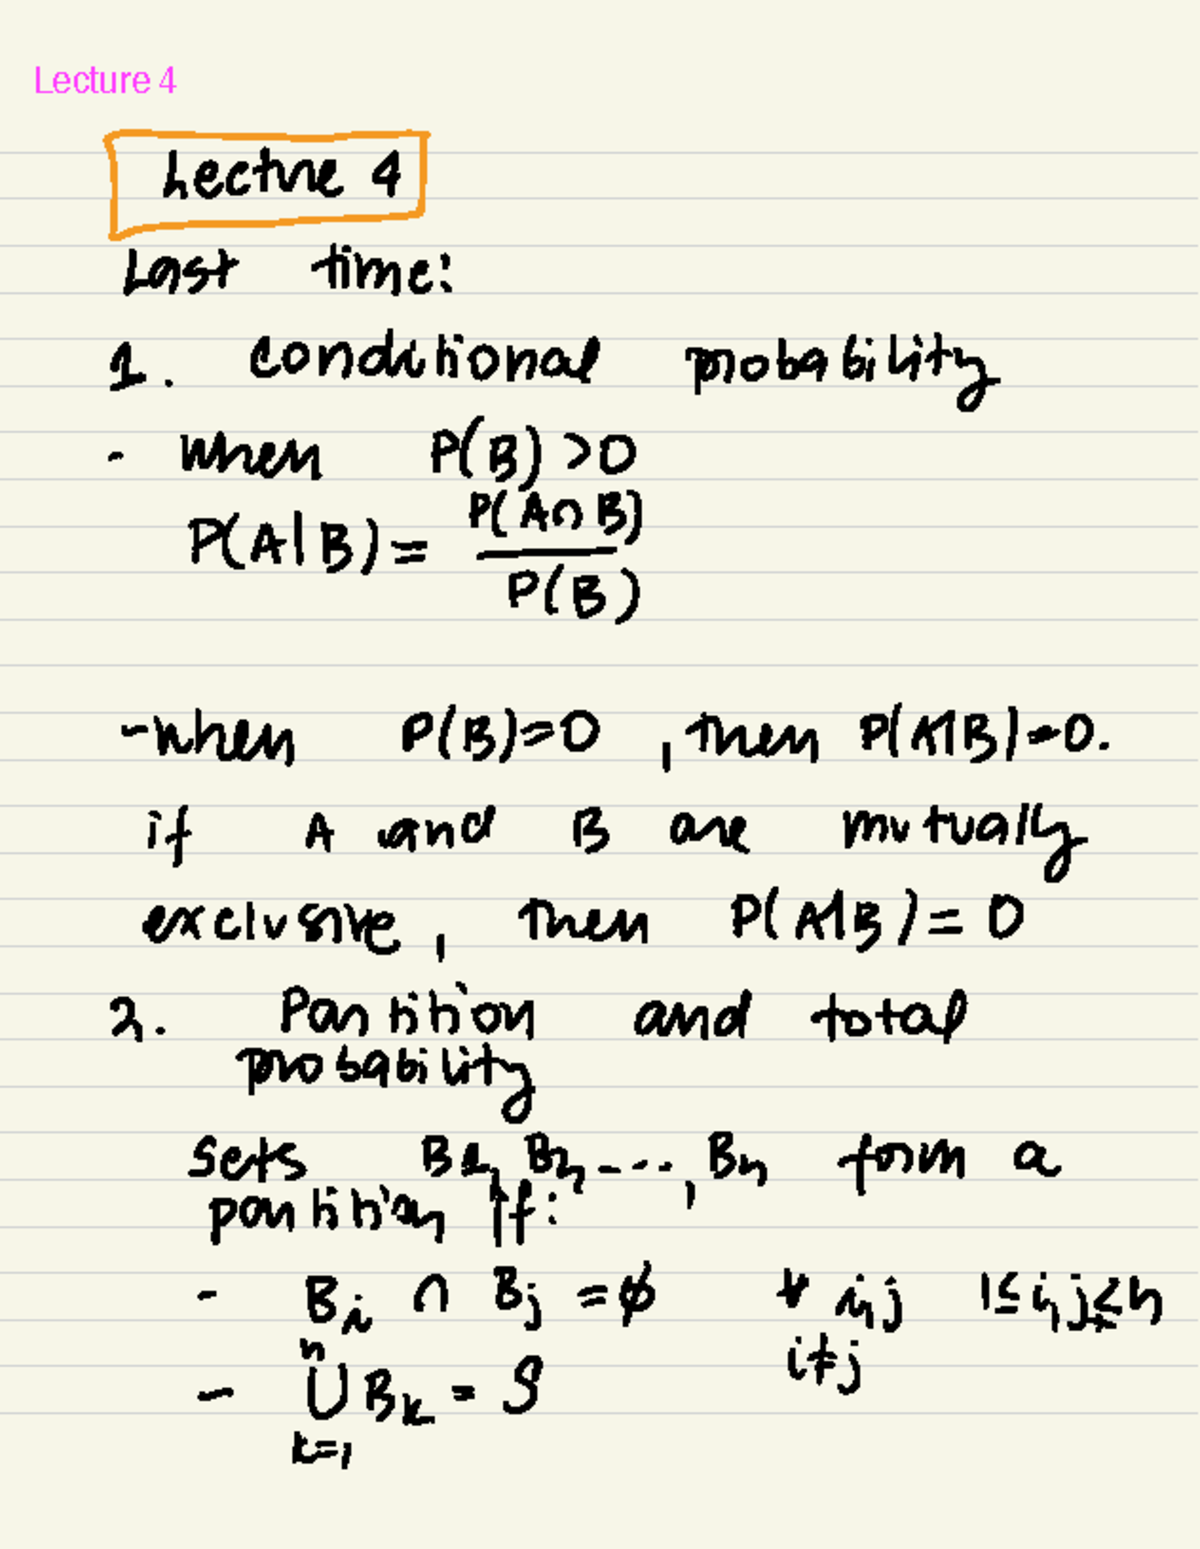 Lecture 4
Lecture 4
Last time:
1. conditional probability
- when P(B) >0
P(A|B) = P(A∩B) / P(B)
- when P(B)=0, then P(A|B)=0.
if A and B are mutually
exclusive, then P(A|B) = 0
2. Partition and total
probability
Sets B1, B2, ---, Bn form a
partition if:
- Bi ∩ Bj = ϕ ∀ i,j 1≤i,j≤n
i≠j
- n ∪ k=1 Bk = S